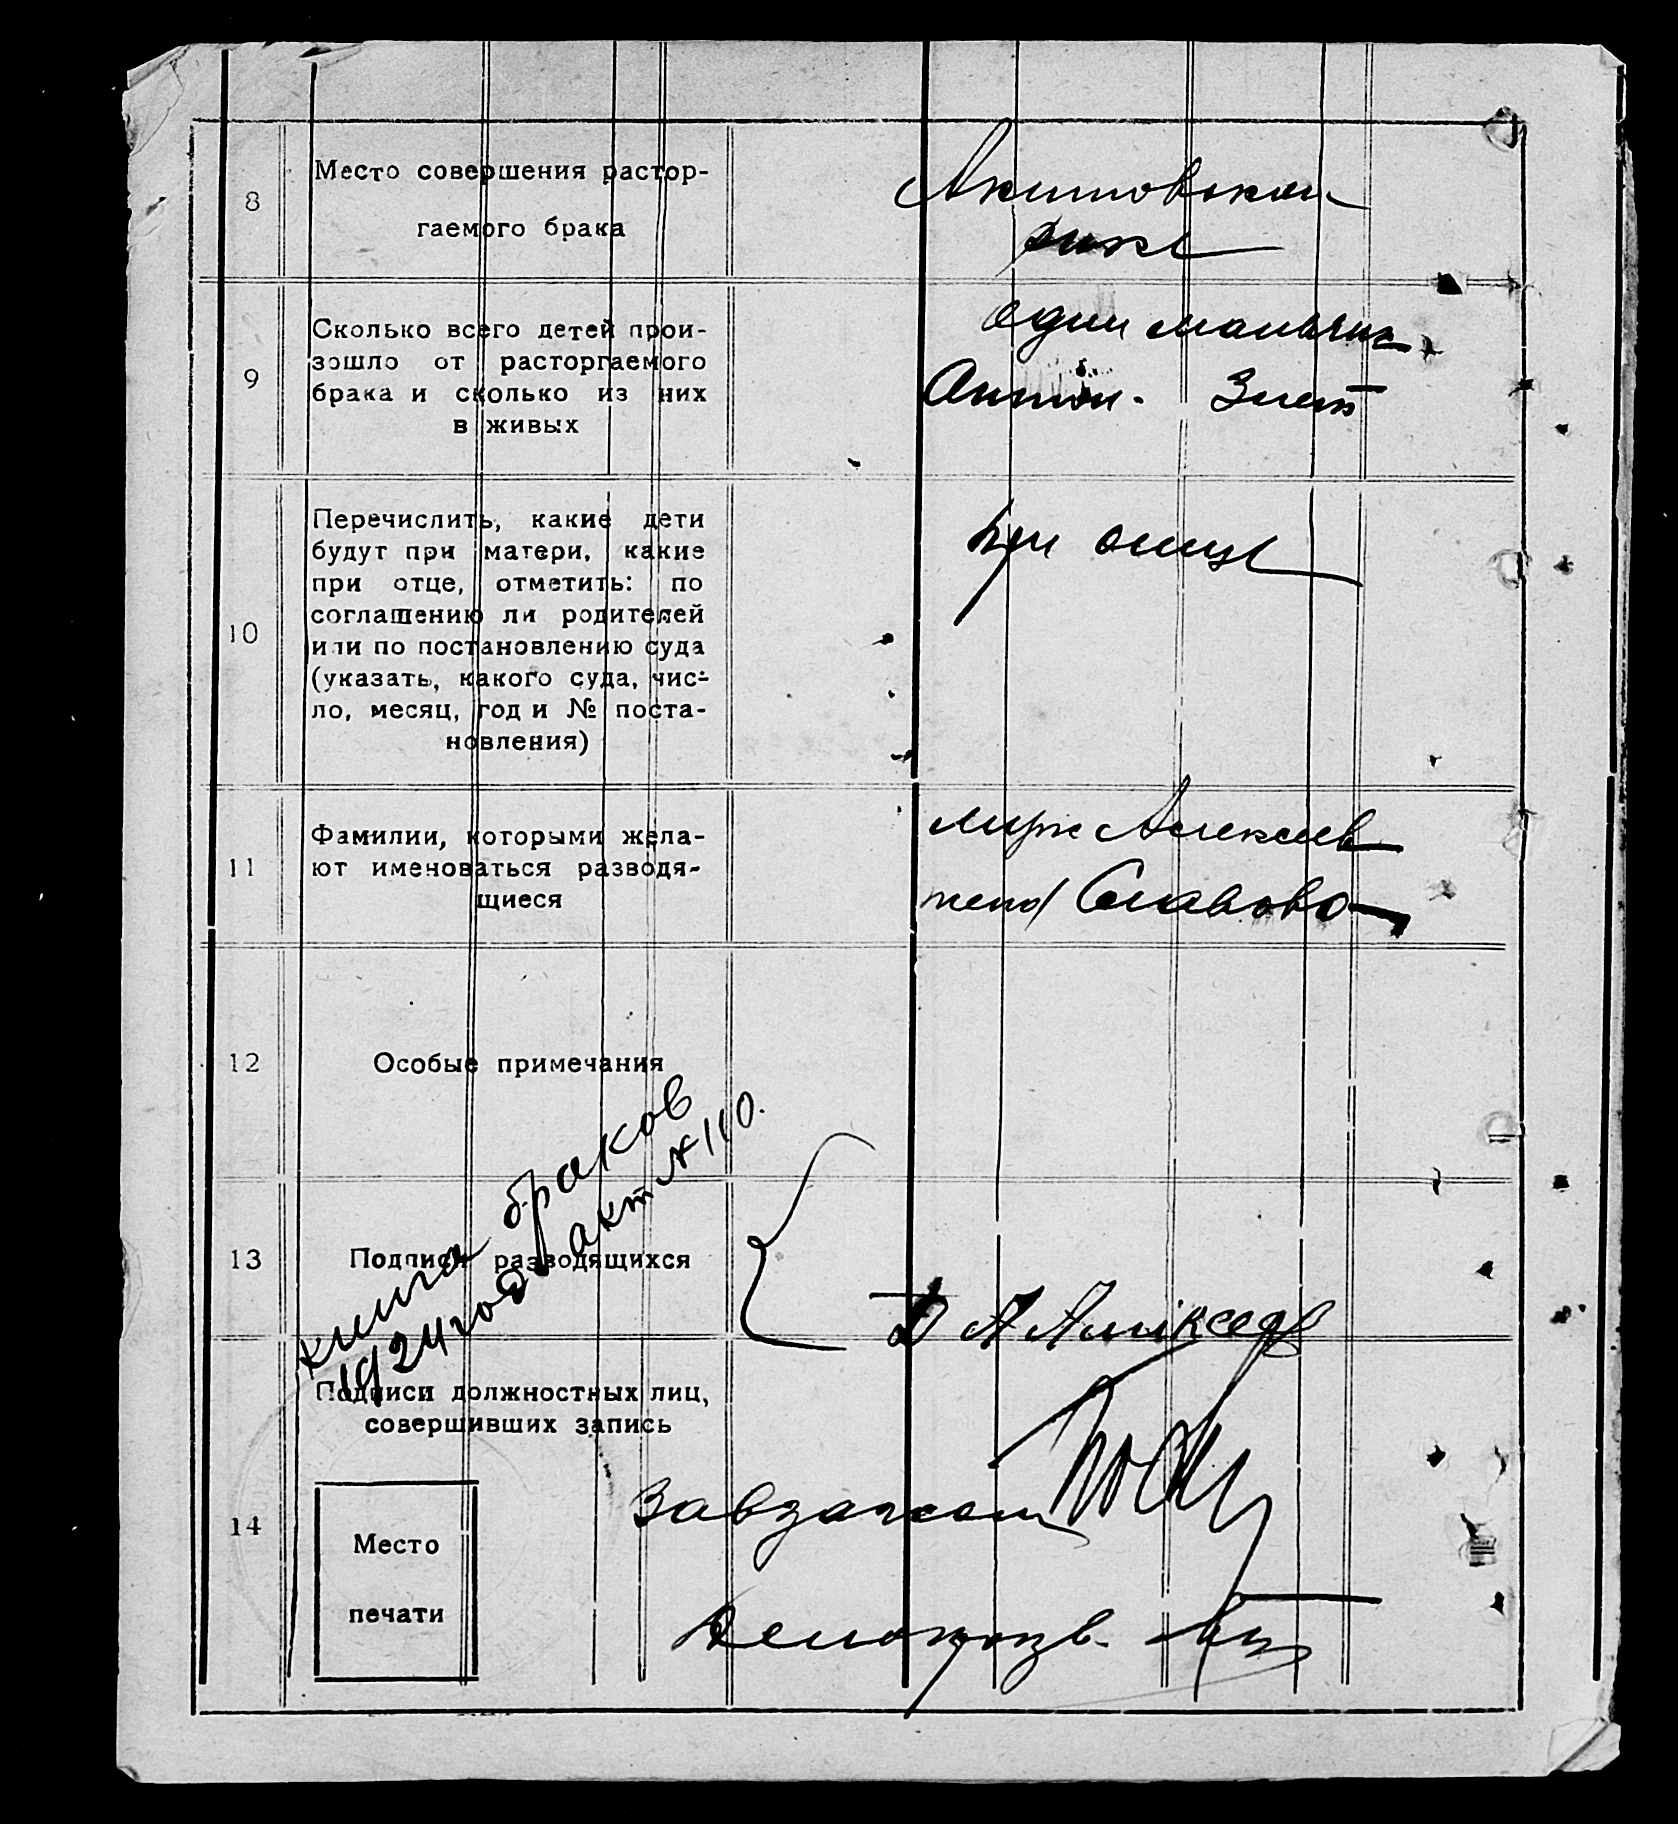 8
Место совершения растор-
гаемого брака
Акимовском
загсе
9
Сколько всего детей прои-
зошло от расторгаемого
брака и сколько из них
в живых
один мальчик
Антон. 3 лет
10
Перечислить, какие дети
будут при матери, какие
при отце, отметить: по
соглашению ли родителей
или по постановлению суда
(указать, какого суда, чис-
ло, месяц, год и № поста-
новления)
при отце
11
Фамилии, которыми жела-
ют именоваться разводя-
щиеся
муж Алексеев
жена Славова
12
Особые примечания
книга браков
1924 год акт № 110.
13
Подписи разводящихся
А Аликсеев
14
Подписи должностных лиц,
совершивших запись
Завзагсом
Делопрозв.
Место
печати